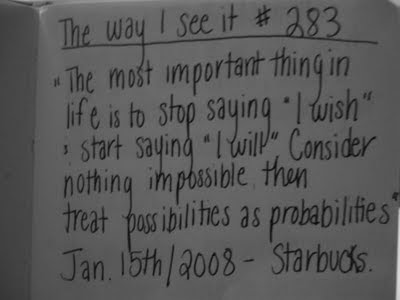 The way I see it # 283
"The most important thing in
life is to stop saying "I wish"
& start saying "I will" Consider
nothing impossible, then
treat possibilities as probabilities"
Jan. 15th/2008 - Starbucks.